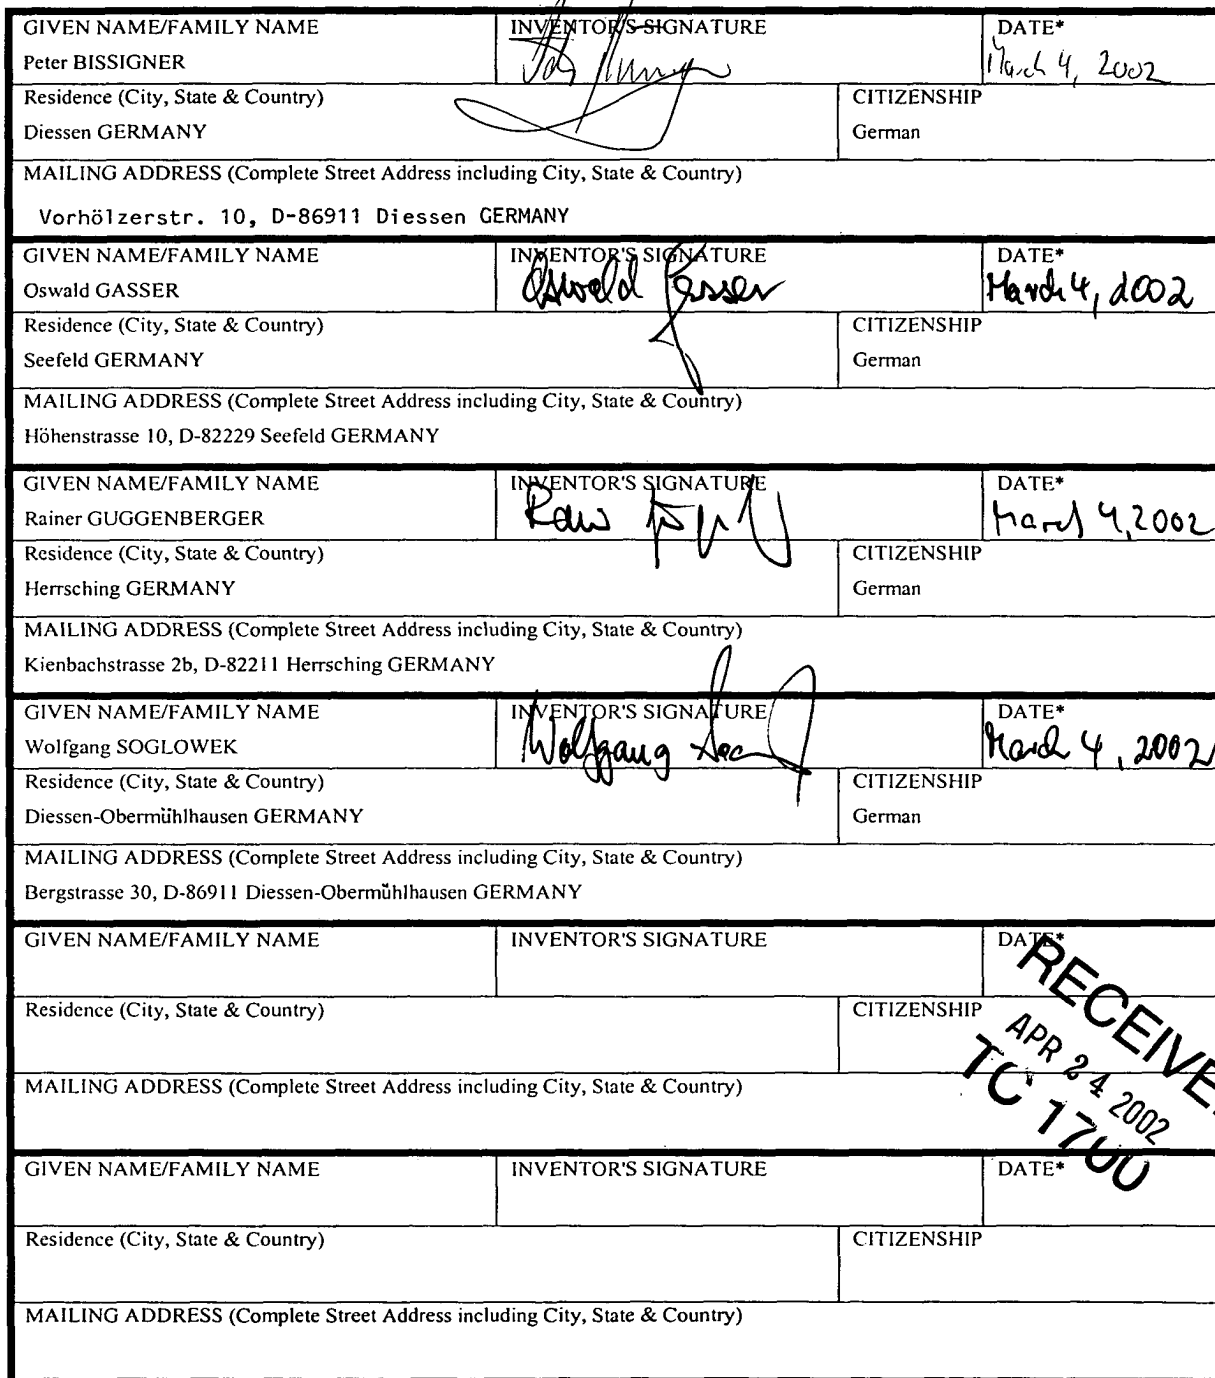 GIVEN NAME/FAMILY NAME INVENTOR'S SIGNATURE DATE*
Peter BISSIGNER March 4, 2002
Residence (City, State & Country) CITIZENSHIP
Diessen GERMANY German
MAILING ADDRESS (Complete Street Address including City, State & Country)
Vorhölzerstr. 10, D-86911 Diessen GERMANY
GIVEN NAME/FAMILY NAME INVENTOR'S SIGNATURE DATE*
Oswald GASSER Oswald Gasser March 4, 2002
Residence (City, State & Country) CITIZENSHIP
Seefeld GERMANY German
MAILING ADDRESS (Complete Street Address including City, State & Country)
Höhenstrasse 10, D-82229 Seefeld GERMANY
GIVEN NAME/FAMILY NAME INVENTOR'S SIGNATURE DATE*
Rainer GUGGENBERGER March 4, 2002
Residence (City, State & Country) CITIZENSHIP
Herrsching GERMANY German
MAILING ADDRESS (Complete Street Address including City, State & Country)
Kienbachstrasse 2b, D-82211 Herrsching GERMANY
GIVEN NAME/FAMILY NAME INVENTOR'S SIGNATURE DATE*
Wolfgang SOGLOWEK Wolfgang March 4, 2002
Residence (City, State & Country) CITIZENSHIP
Diessen-Obermühlhausen GERMANY German
MAILING ADDRESS (Complete Street Address including City, State & Country)
Bergstrasse 30, D-86911 Diessen-Obermühlhausen GERMANY
GIVEN NAME/FAMILY NAME INVENTOR'S SIGNATURE DATE*
RECEIVE
Residence (City, State & Country) CITIZENSHIP
APR 24 2002
TC 1700
MAILING ADDRESS (Complete Street Address including City, State & Country)
GIVEN NAME/FAMILY NAME INVENTOR'S SIGNATURE DATE*
Residence (City, State & Country) CITIZENSHIP
MAILING ADDRESS (Complete Street Address including City, State & Country)